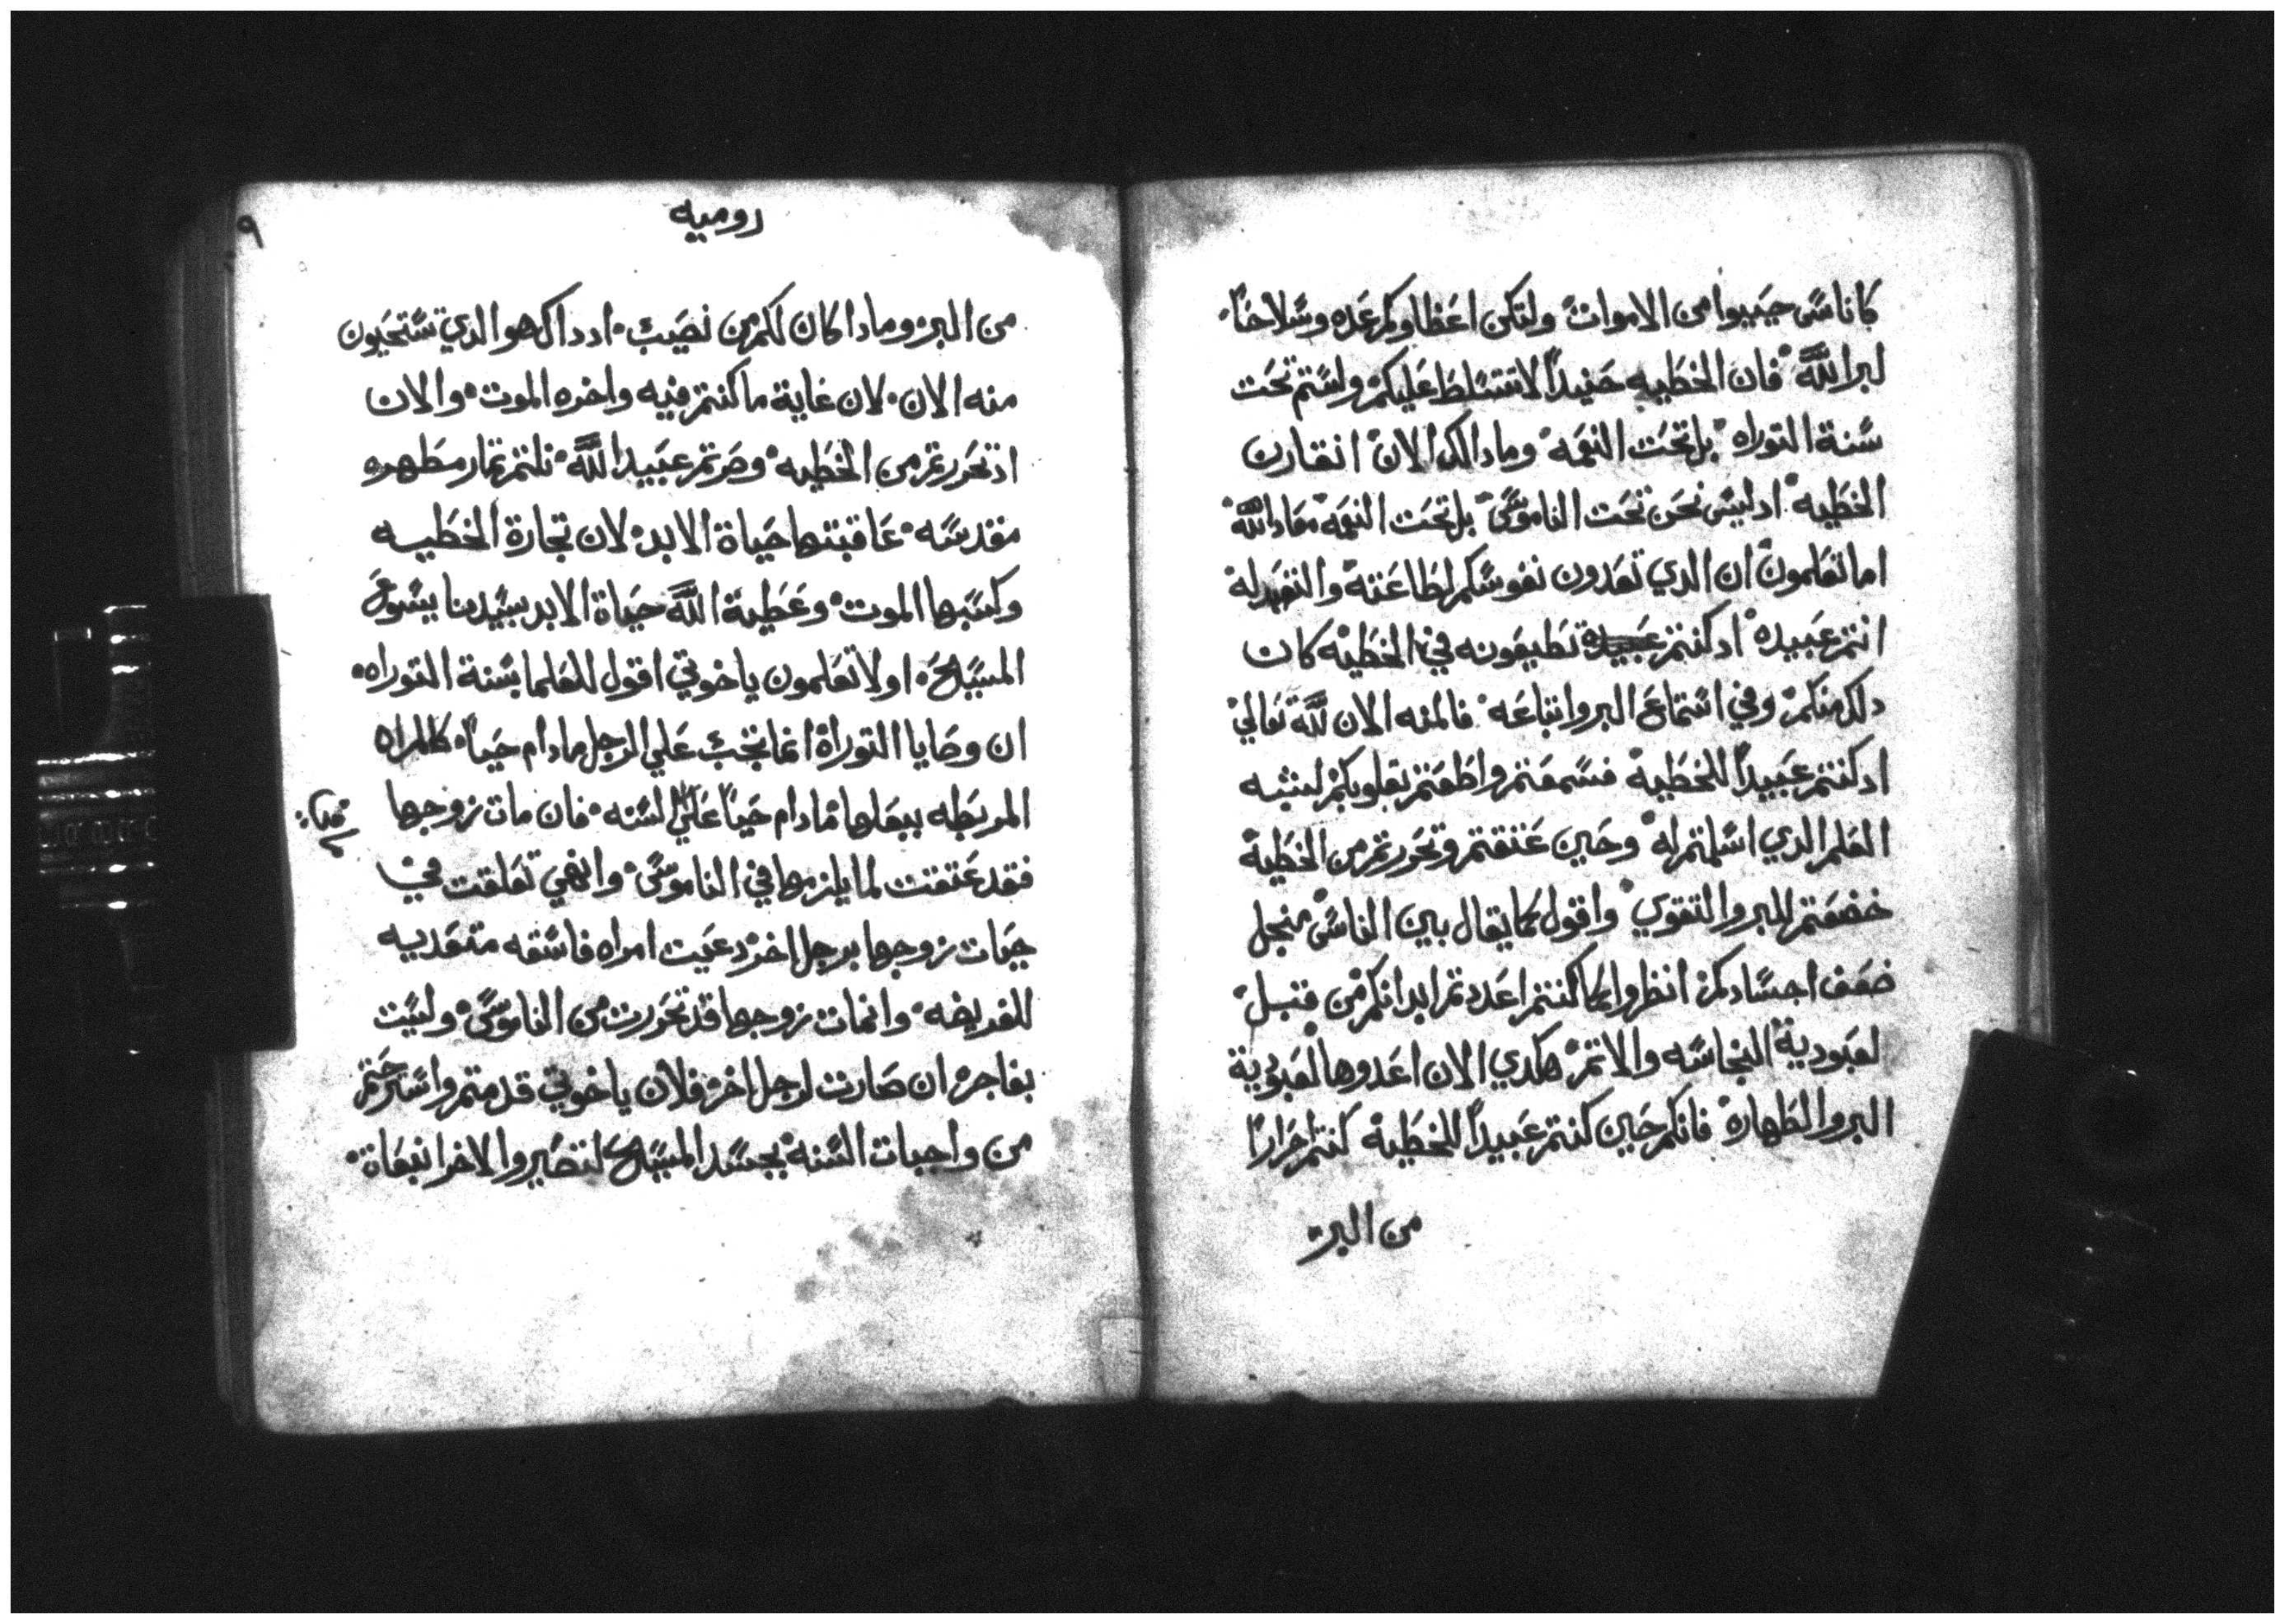 كاناسً حييوا من الاموات ولتكن اعضاوكم عده وسلاحًا
لبر اللّه فان الخطيه حنيدًا لا تتسلط عليكم ولستم تحت
سنة التوراه بل تحت النعمه وما دالك الان انقارن
الخطيه اد ليس نحن تحت الناموس بل تحت النعمه معاد اللّه
اما تعلمون ان الدي تعدون نفوسكم لطاعته والتعبد له
انتم عبيده اد كنتم تطيعونه في الخطيه كان
دلك منكم وفي استماع البر واتباعه فالمنه الان للّه تعالي
اد كنتم عبيدًا للخطية فسمعتم واطعتم بقلوبكم لشبه
العلم الدي اسلمتم له وحين عتقتم وتحررتم من الخطية
خضعتم للبر والتقوي واقول كما يقال بين الناس منجل
ضعف اجسادكم انظروا كما كنتم اعددتم ابدانكم من قبل
لعبودية النجاسه والاتم هكدي الان اعدوها لعبودية
البر والطهارة فانكم حين كنتم عبيدًا للخطية كنتم احرارًا
من البر
روميه
٩
من البر وما دا كان لكم من نصيب اد داك هو الدي تستحيون
منه الان لان غاية ما كنتم فيه واخره الموت والان
اد تحررتم من الخطيه وصرتم عبيد اللّه نلتم تمار مطهره
مقدسه عاقبتها حياة الابد لان تجارة الخطيه
وكسبها الموت وعطية اللّه حياة الابد بسيدنا يسوع
المسيح اولا تعلمون ياخوتي اقول للعلما بسنة التوراه
ان وصايا التوراة انما تجب علي الرجل مادام حيًا كالمراه
المربطه ببعلها مادام حيًا علي السنه فان مات زوجها
فقد عتقت لما يلزمها في الناموس وان هي تعلقت في
حيات زوجها برجل اخر دعيت امراه فاسقه متعديه
للفريضه وانمات زوجها قد تحررت من الناموس وليست
بفاجر ان صارت لرجل اخر فلان ياخوتي قد متم واسترحتم
من واجبات السنه بجسد المسيح لتصيروا لاخر انبعات